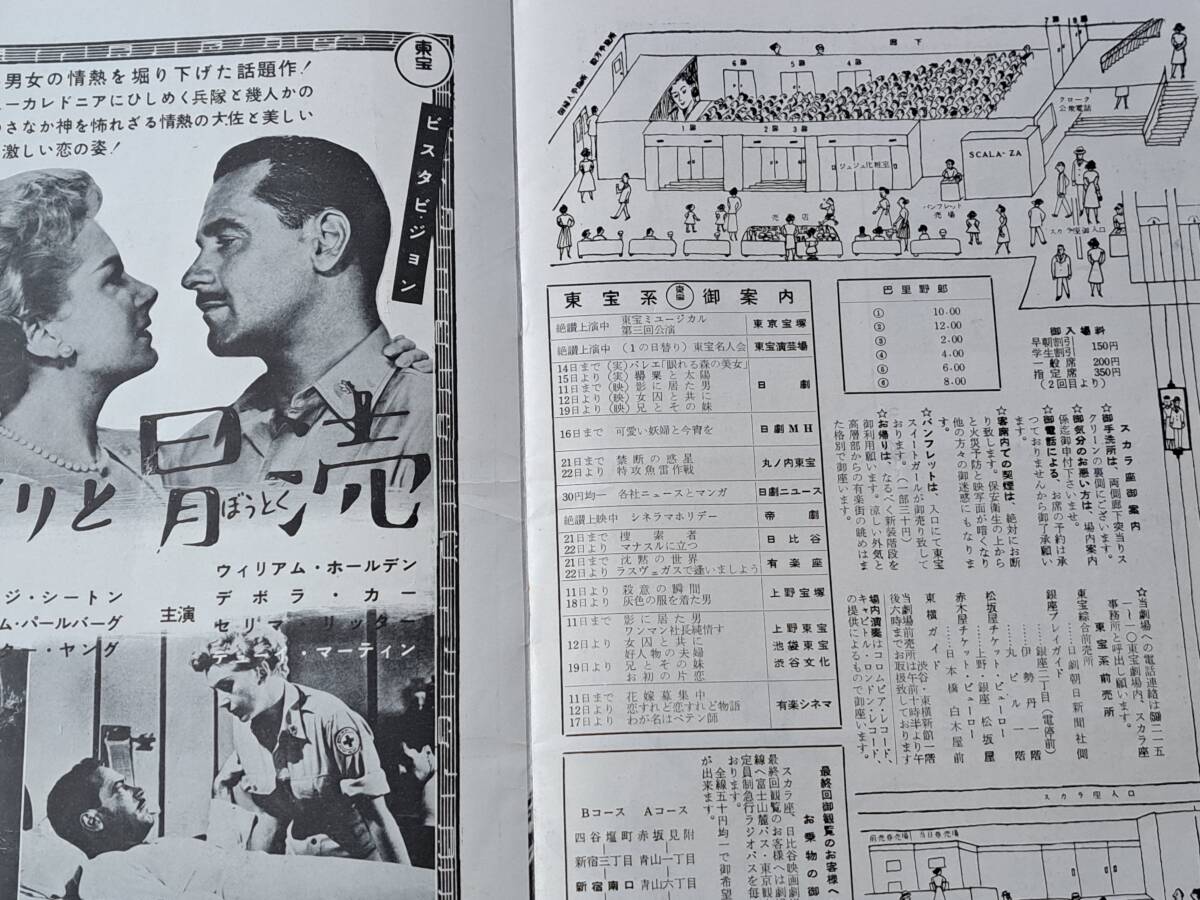 男女の情熱を堀り下げた話題作!
ーカレドニアにひしめく兵隊と幾人かの
さなか神を怖れざる情熱の大佐と美しい
激しい恋の姿!
東宝
ビスタビジョン
りと冒瀆
ぼうとく
ウィリアム・ホールデン
デボラ・カー
セリマ・リッター
ディーン・マーティン
主演
ジ・シートン
ム・パールバーグ
ター・ヤング
廊下
6
5
4
7
8
1
2
3
クローク
公衆電話
ジュジュ化粧室
SCALA-ZA
パンフレット
売場
売店
スカラ座御入口
東宝系 東宝 御案内
絶讃上演中 東宝ミュージカル 第三回公演 東京宝塚
絶讃上演中 (1の日替り) 東宝名人会 東宝演芸場
14日まで (実) バレエ「眠れる森の美女」
15日より (実) 罌粟と太陽
11日まで (映) 影に居た男
12日より (映) 女囚と共に
19日より (映) 兄とその妹
日劇
16日まで 可愛い妖婦と今宵を 日劇MH
21日まで 禁断の惑星
22日より 特攻魚雷作戦
丸ノ内東宝
30円均一 各社ニュースとマンガ 日劇ニュース
絶讃上映中 シネラマホリデー 帝劇
21日まで 捜索者
22日より マナスルに立つ
日比谷
21日まで 沈黙の世界
22日より ラスヴェガスで逢いましよう
有楽座
11日より 殺意の瞬間
18日より 灰色の服を着た男
上野宝塚
11日まで 影に居た男
ワンマン社長純情す
12日より 女囚と共に
好人物の夫婦
19日より 兄とその妹
お初の片恋
上野東宝
池袋東宝
渋谷文化
11日まで 花嫁募集中
12日より 恋すれど恋すれど物語
17日より わが名はペテン師
有楽シネマ
巴里野郎
① 10.00
② 12.00
③ 2.00
④ 4.00
⑤ 6.00
⑥ 8.00
御入場料
早朝割引
学生割引 150円
一般席 200円
指定席 350円
(2回目より)
スカラ座御案内
☆御手洗所は、両側廊下突当りス
クリーンの裏側にございます。
☆御気分のお悪い方は、場内案内
係迄御申付下さいませ。
☆御電話による、お席の予約は承
つておりませんから御了承願い
ます。
☆客席内での喫煙は、絶対にお断
り致します。保安衛生の上から
と火災予防と映写面が暗くなり
他の方々の御迷惑にもなりま
す。
☆パンフレットは、入口にて東宝
スイートガールが御売り致して
おります。(一部三十円)
☆お帰りは、なるべく新装階段を
御利用願います。涼しい外気と
高層部からの有楽街の眺めはま
た格別で御座います。
☆当劇場への電話連絡は
事務所と呼出し願います。
東宝系前売所
東宝綜合前売所
……日劇朝日新聞社側
銀座プレイガイド
……銀座二丁目(電停前)
……伊勢丹一階
……丸ビル一階
松坂屋チケット・ビューロー
……上野、銀座松坂屋
赤木屋チケット・ビューロー
……日本橋白木屋前
東横ガイド
……渋谷・東横新館一階
当劇場前売所は午前十時半より午
後六時までお取扱致しております
場内演奏はコロムビア・レコード、
キャピトル・ロンドン・レコード、
の提供によるもので御座います。
最終回御観覧のお客様へ
お乗物の御
スカラ座、日比谷映画劇
最終回観覧のお客様へは劇
線へ富士山麓バス・東京観
定員制急行ラジオバスを毎
おります。
全線五十円均一で御希望
が出来ます。
Aコース
赤坂見附
青山一丁目
青山六丁目
Bコース
四谷塩町
新宿三丁目
新宿南口
スカラ座入口
前売券売場
当日券売場